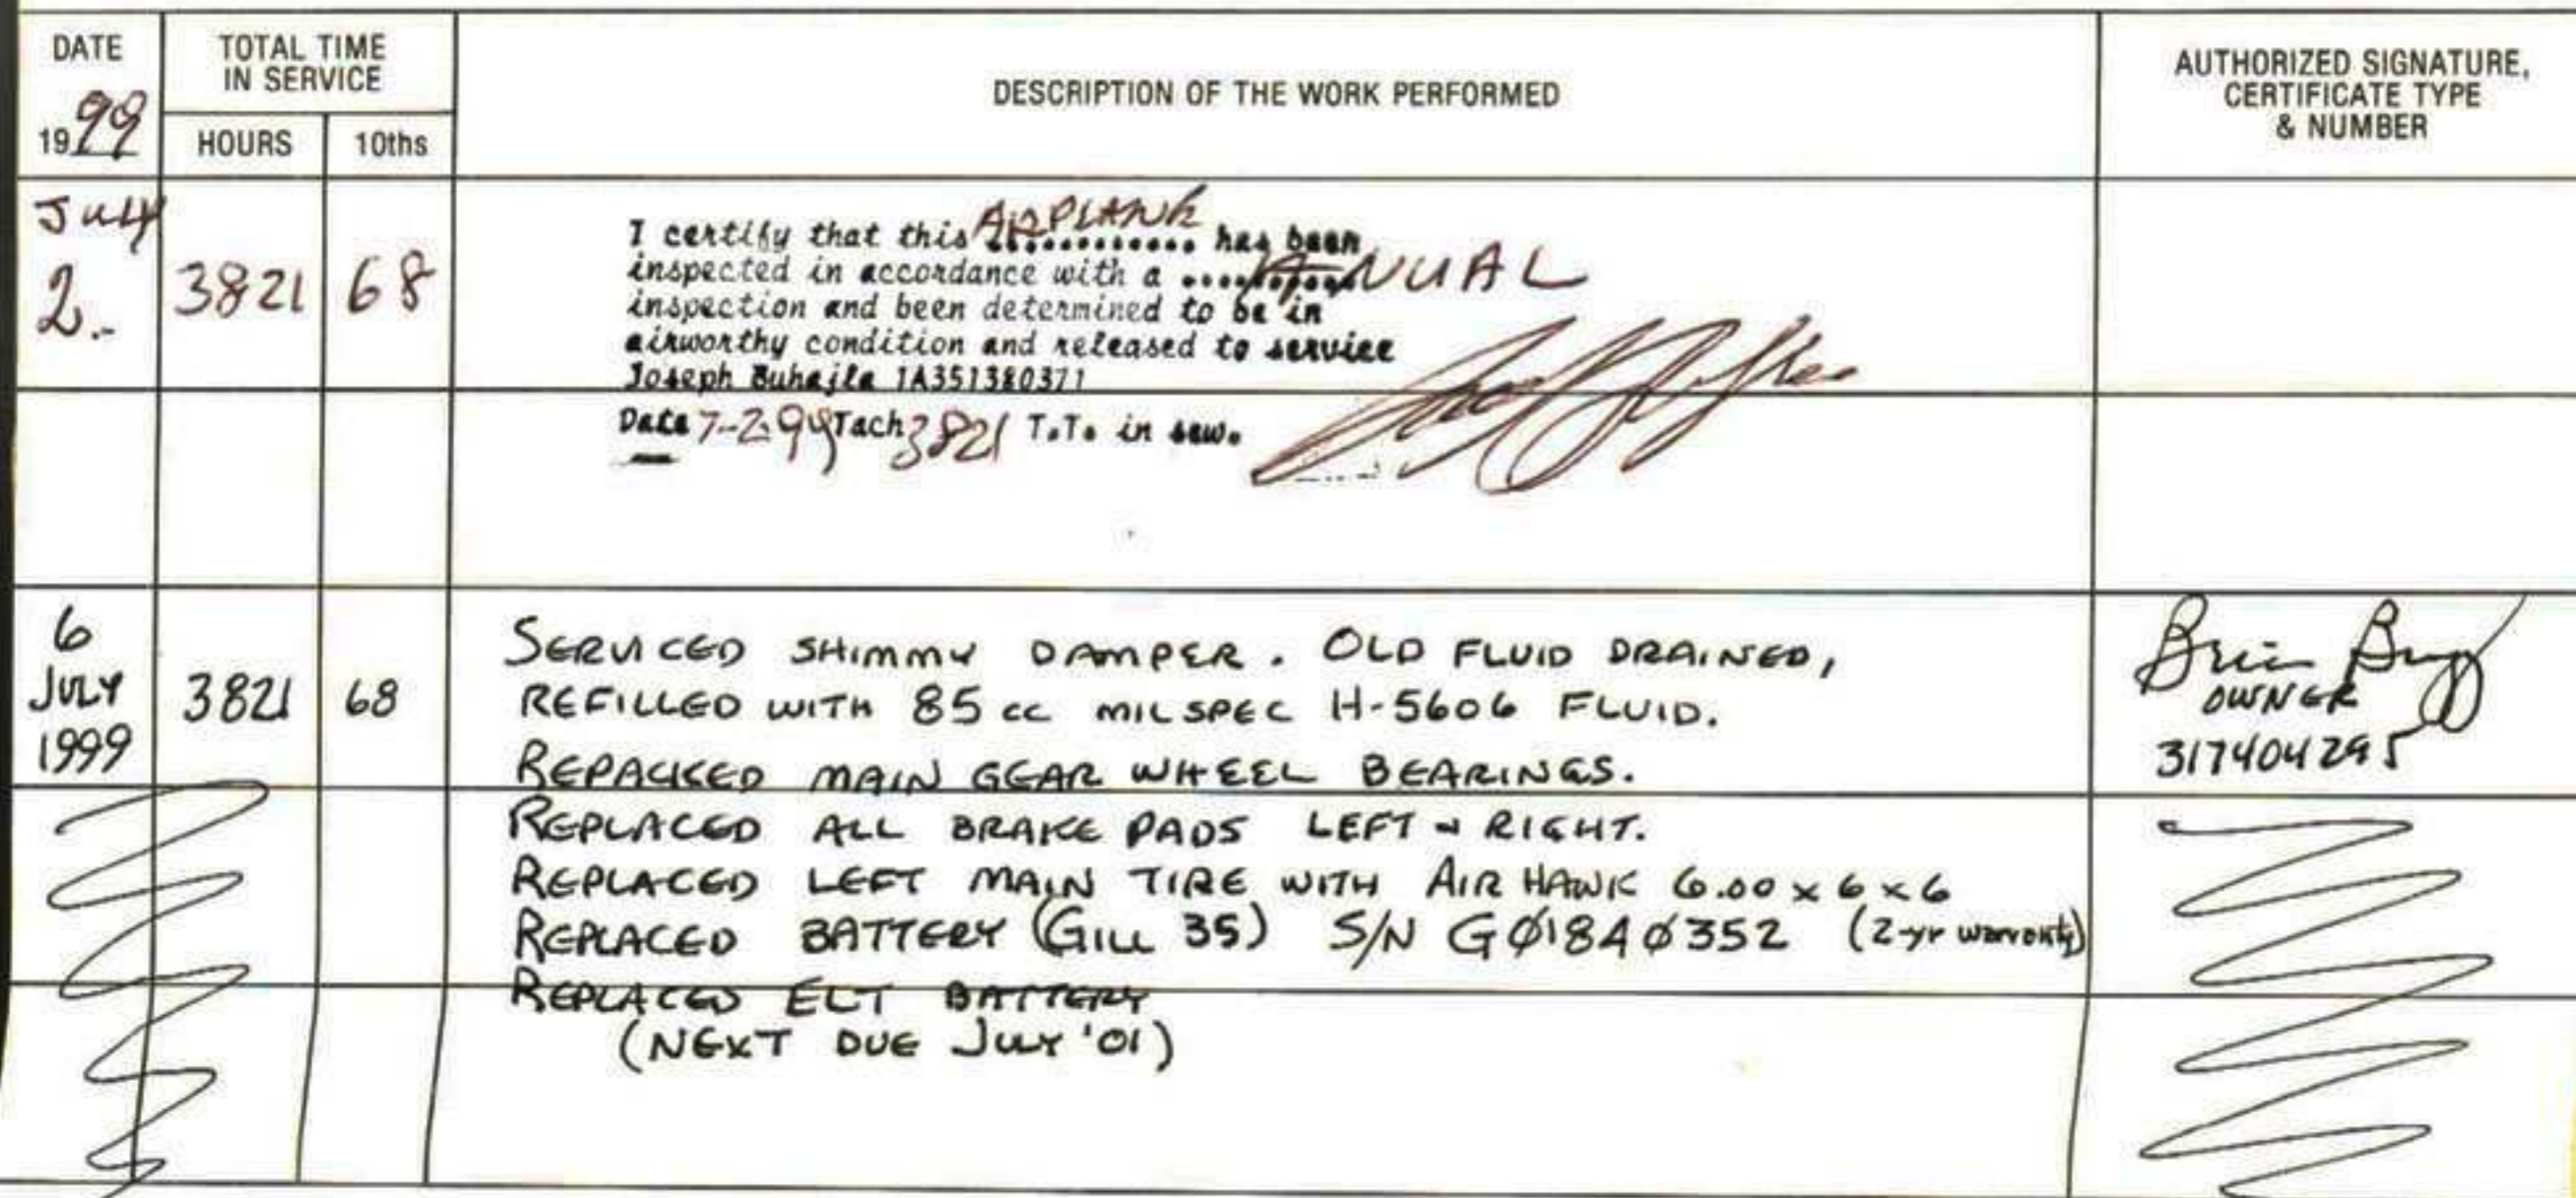 DATE
1999
TOTAL TIME
IN SERVICE
HOURS
10ths
DESCRIPTION OF THE WORK PERFORMED
AUTHORIZED SIGNATURE,
CERTIFICATE TYPE
& NUMBER
July
2.-
3821
68
I certify that this AIRPLANE has been
inspected in accordance with a ANUAL
inspection and been determined to be in
airworthy condition and released to service
Joseph Buhajla IA351380371
Date 7-2-99 Tach 3821 T.T. in serv.
6
JULY
1999
3821
68
SERVICED SHIMMY DAMPER. OLD FLUID DRAINED,
REFILLED WITH 85 cc MILSPEC H-5606 FLUID.
REPACKED MAIN GEAR WHEEL BEARINGS.
REPLACED ALL BRAKE PADS LEFT & RIGHT.
REPLACED LEFT MAIN TIRE WITH AIR HAWK 6.00 x 6 x 6
REPLACED BATTERY (GILL 35) S/N GØ184Ø352 (2-yr warranty)
REPLACED ELT BATTERY
(NEXT DUE JULY '01)
OWNER
317404295